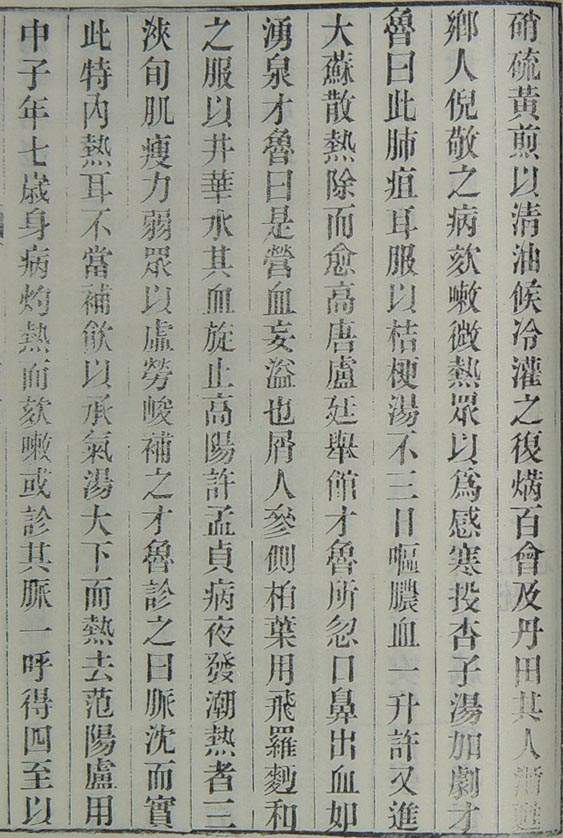 硝硫黃煎以清油候冷灌之復焫百會及丹田其人漸甦
鄉人倪敬之病欬嗽微熱眾以為感寒投杏子湯加劇才
魯曰此肺疽耳服以桔梗湯不三日嘔膿血一升許又進
大蘇散熱除而愈高唐盧廷舉館才魯所忽口鼻出血如
湧泉才魯曰是營血妄溢也屑人參側柏葉用飛羅麪和
之服以井華水其血旋止高陽許孟貞病夜發潮熱者三
浹旬肌瘦力弱眾以虛勞峻補之才魯診之曰脈沈而實
此特內熱耳不當補飲以承氣湯大下而熱去范陽盧用
中子年七歲身病灼熱而欬嗽或診其脈一呼得四至以